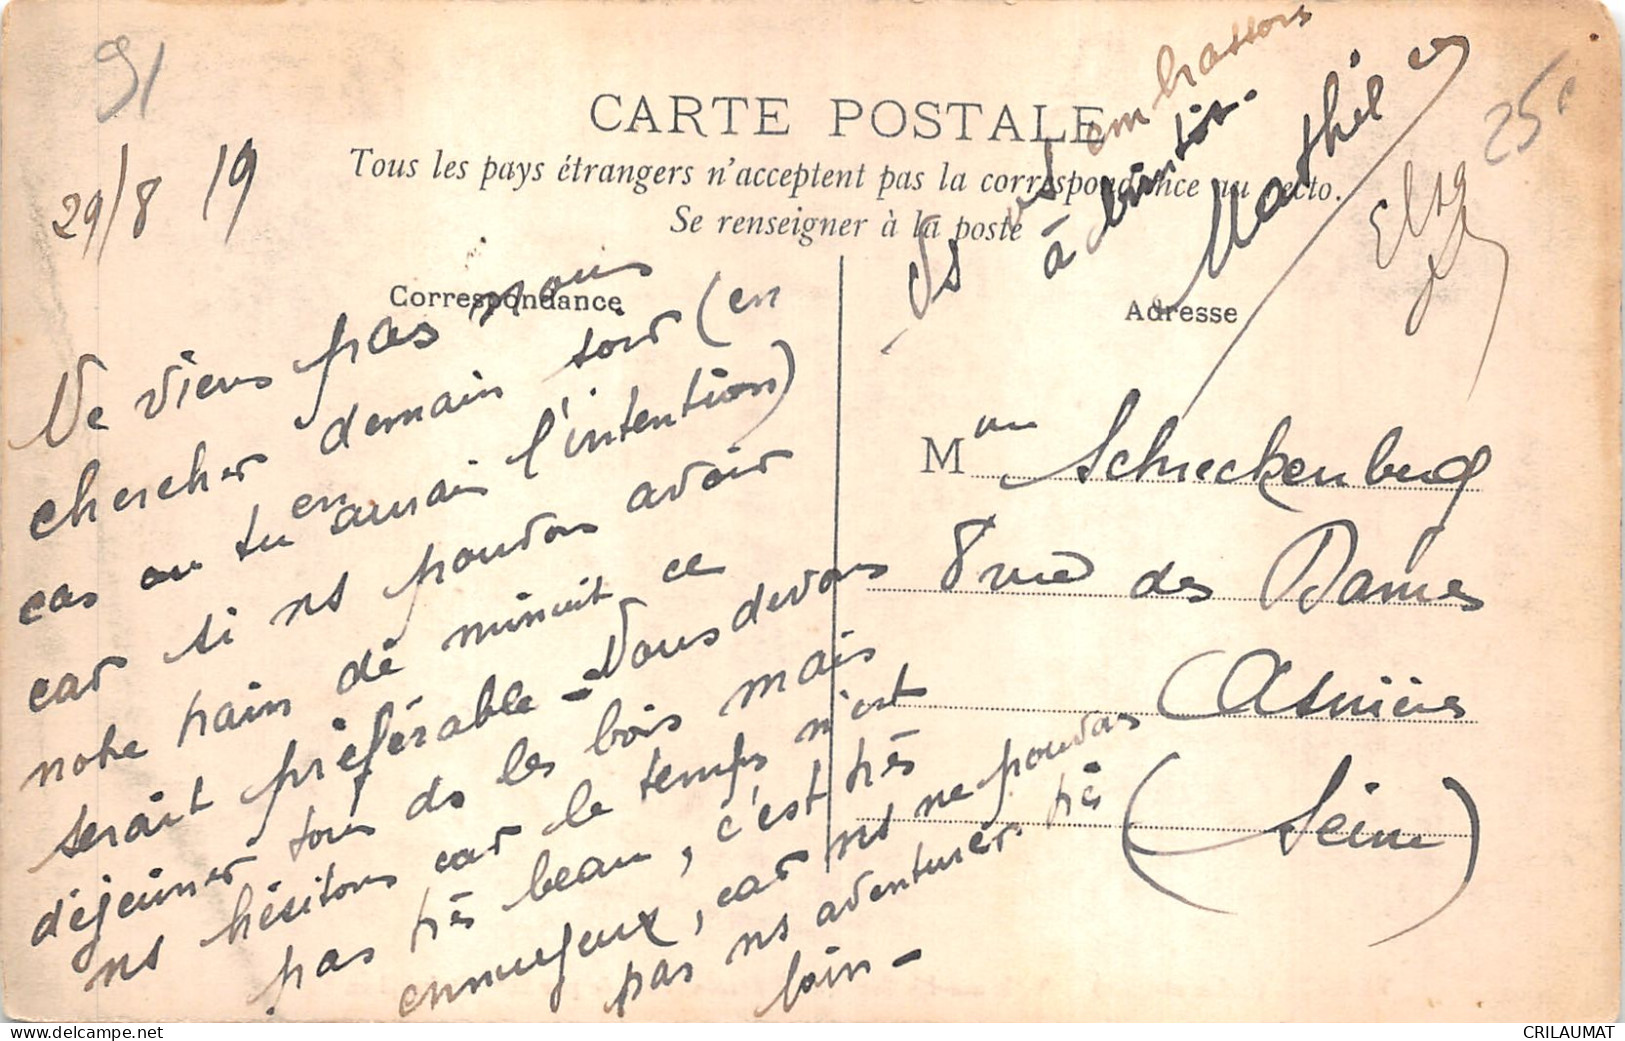 91
29/8 19
25c
CARTE POSTALE
Tous les pays étrangers n'acceptent pas la correspondance au recto.
Se renseigner à la poste
Correspondance
Adresse
Ne viens pas nous
chercher demain soir (en
cas où tu en aurais l'intention)
car si ns pouvons avoir
notre train de minuit ce
serait préférable - Nous devons
déjeuner tous ds les bois mais
ns hésitons car le temps n'est
pas très beau, c'est très
ennuyeux, car ns ne pouvons
pas ns aventurer très
loin -
Ns vs embrassons
à bientôt.
Mathil
Mme Schreckenberg
8 rue des Dames
Asnières
(Seine)
CRILAUMAT